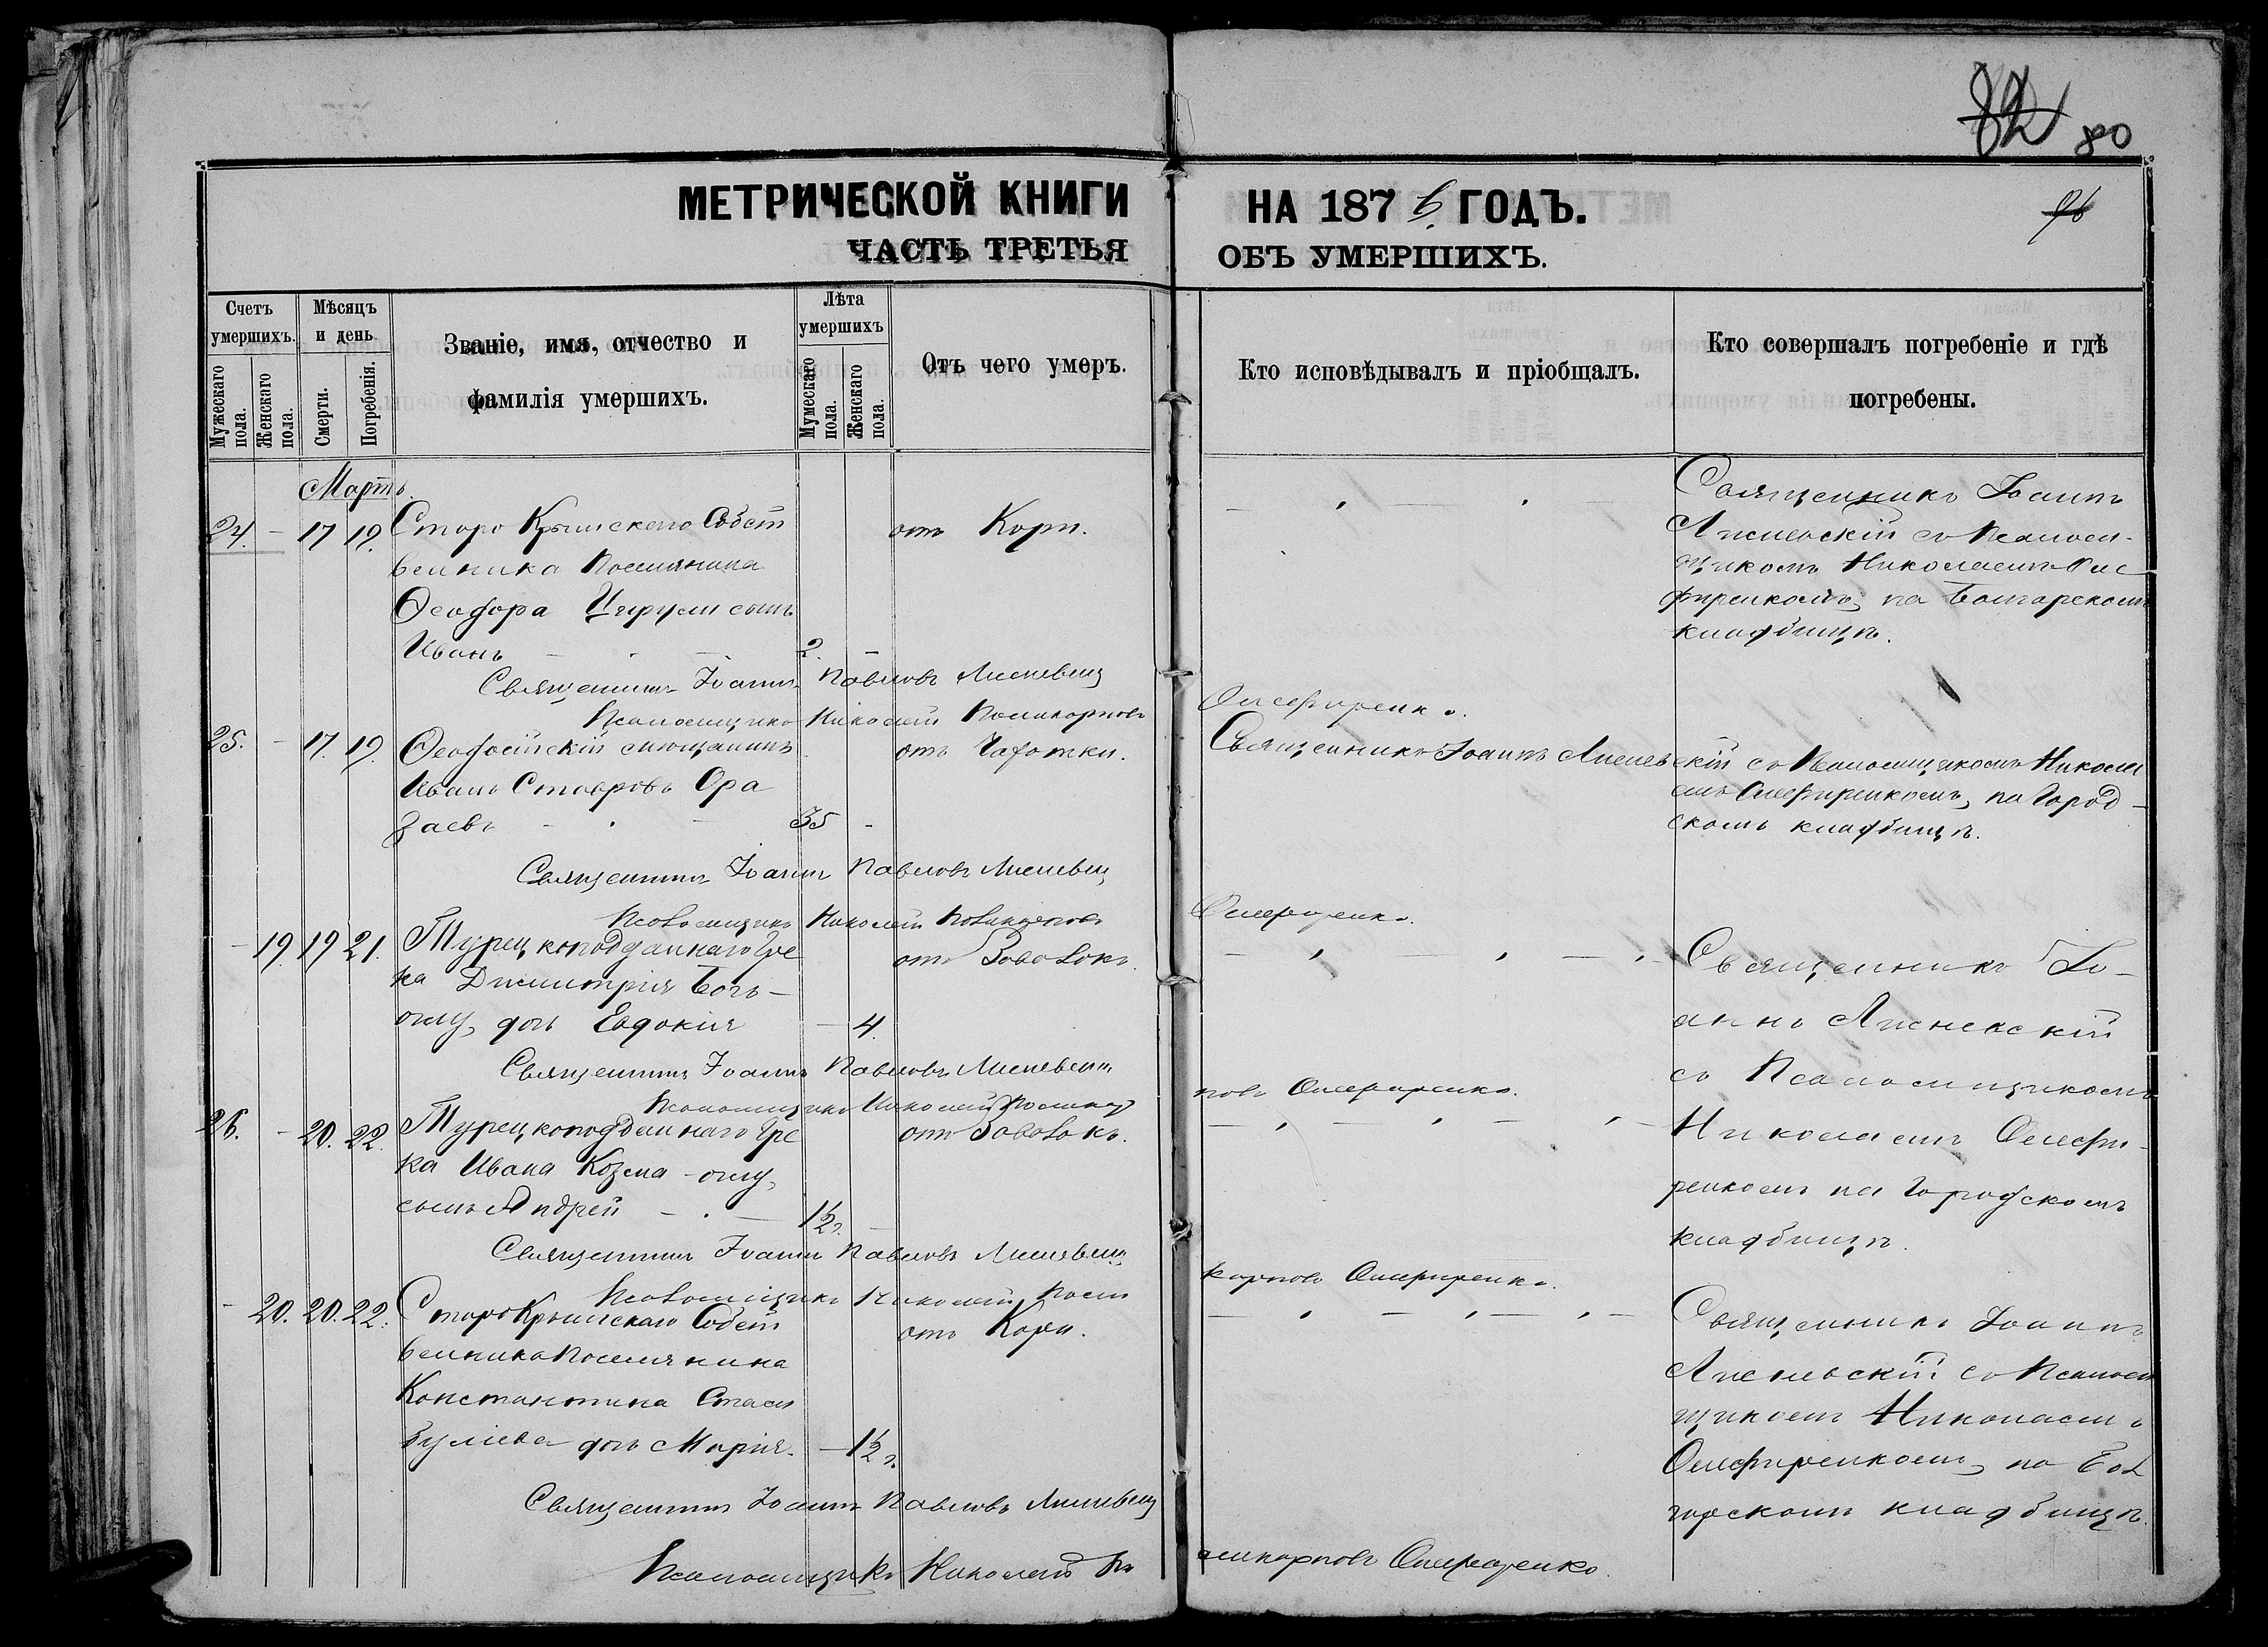 82 80
МЕТРИЧЕСКОЙ КНИГИ НА 1876 ГОДЪ.
96
ЧАСТЬ ТРЕТЬЯ ОБЪ УМЕРШИХЪ.
Счетъ умершихъ.
Мужескаго пола.
Женскаго пола.
Мѣсяцъ и день
Смерти.
Погребенія.
Званіе, имя, отчество и
фамилія умершихъ.
Лѣта умершихъ
Мужескаго пола.
Женскаго пола.
Отъ чего умеръ.
Кто исповѣдывалъ и пріобщалъ.
Кто совершалъ погребеніе и гдѣ
погребены.
Мартъ.
24. - 17 19. Старо Крымскаго Собст
венника Поселянина
Ѳеодора сынъ
Иванъ - 2. -
отъ Кори.
Священникъ Іоаннъ
со Псаломщ-
щикомъ Николаемъ Оле
фиренкомъ, на Болгарскомъ
кладбищѣ.
Священникъ Іоаннъ Павловъ
Псаломщикъ Николай Поликарповъ Олефиренко.
25. - 17. 19. Ѳеодосійскій мѣщанинъ
Иванъ Ставровъ Ора
заевъ - 35 -
отъ Чахотки.
Священникъ Іоаннъ
со Псаломщикомъ Никола
емъ Олефиренкомъ, на Город-
скомъ кладбищѣ.
Священникъ Іоаннъ Павловъ
Псаломщикъ Николай Поликарповъ Олефиренко.
- 19. 19 21. Турецкоподданнаго Гре
ка Димитрія Богъ-
оглу, дочь Евдокія - 4.
отъ
Священникъ Іо-
аннъ
со Псаломщикомъ
Николаемъ Олефи-
ренкомъ на Городскомъ
кладбищѣ.
Священникъ Іоаннъ Павловъ
Псаломщикъ Николай Поликарповъ Олефиренко.
26. - 20. 22. Турецкоподданнаго Гре
ка Ивана Козма-оглу,
сынъ Андрей - 1½ г. -
отъ
Священникъ Іоаннъ Павловъ
Псаломщикъ Николай Поли
карповъ Олефиренко.
- 20. 20. 22. Старо Крымскаго Собст
венника Поселянина
Константина
дочь Марія. - 1½ г.
отъ Кори.
Священникъ Іоаннъ
со Псалом
щикомъ Николаемъ
Олефиренкомъ, на Бол
гарскомъ кладбищѣ.
Священникъ Іоаннъ Павловъ
Псаломщикъ Николай По
ликарповъ Олефиренко.